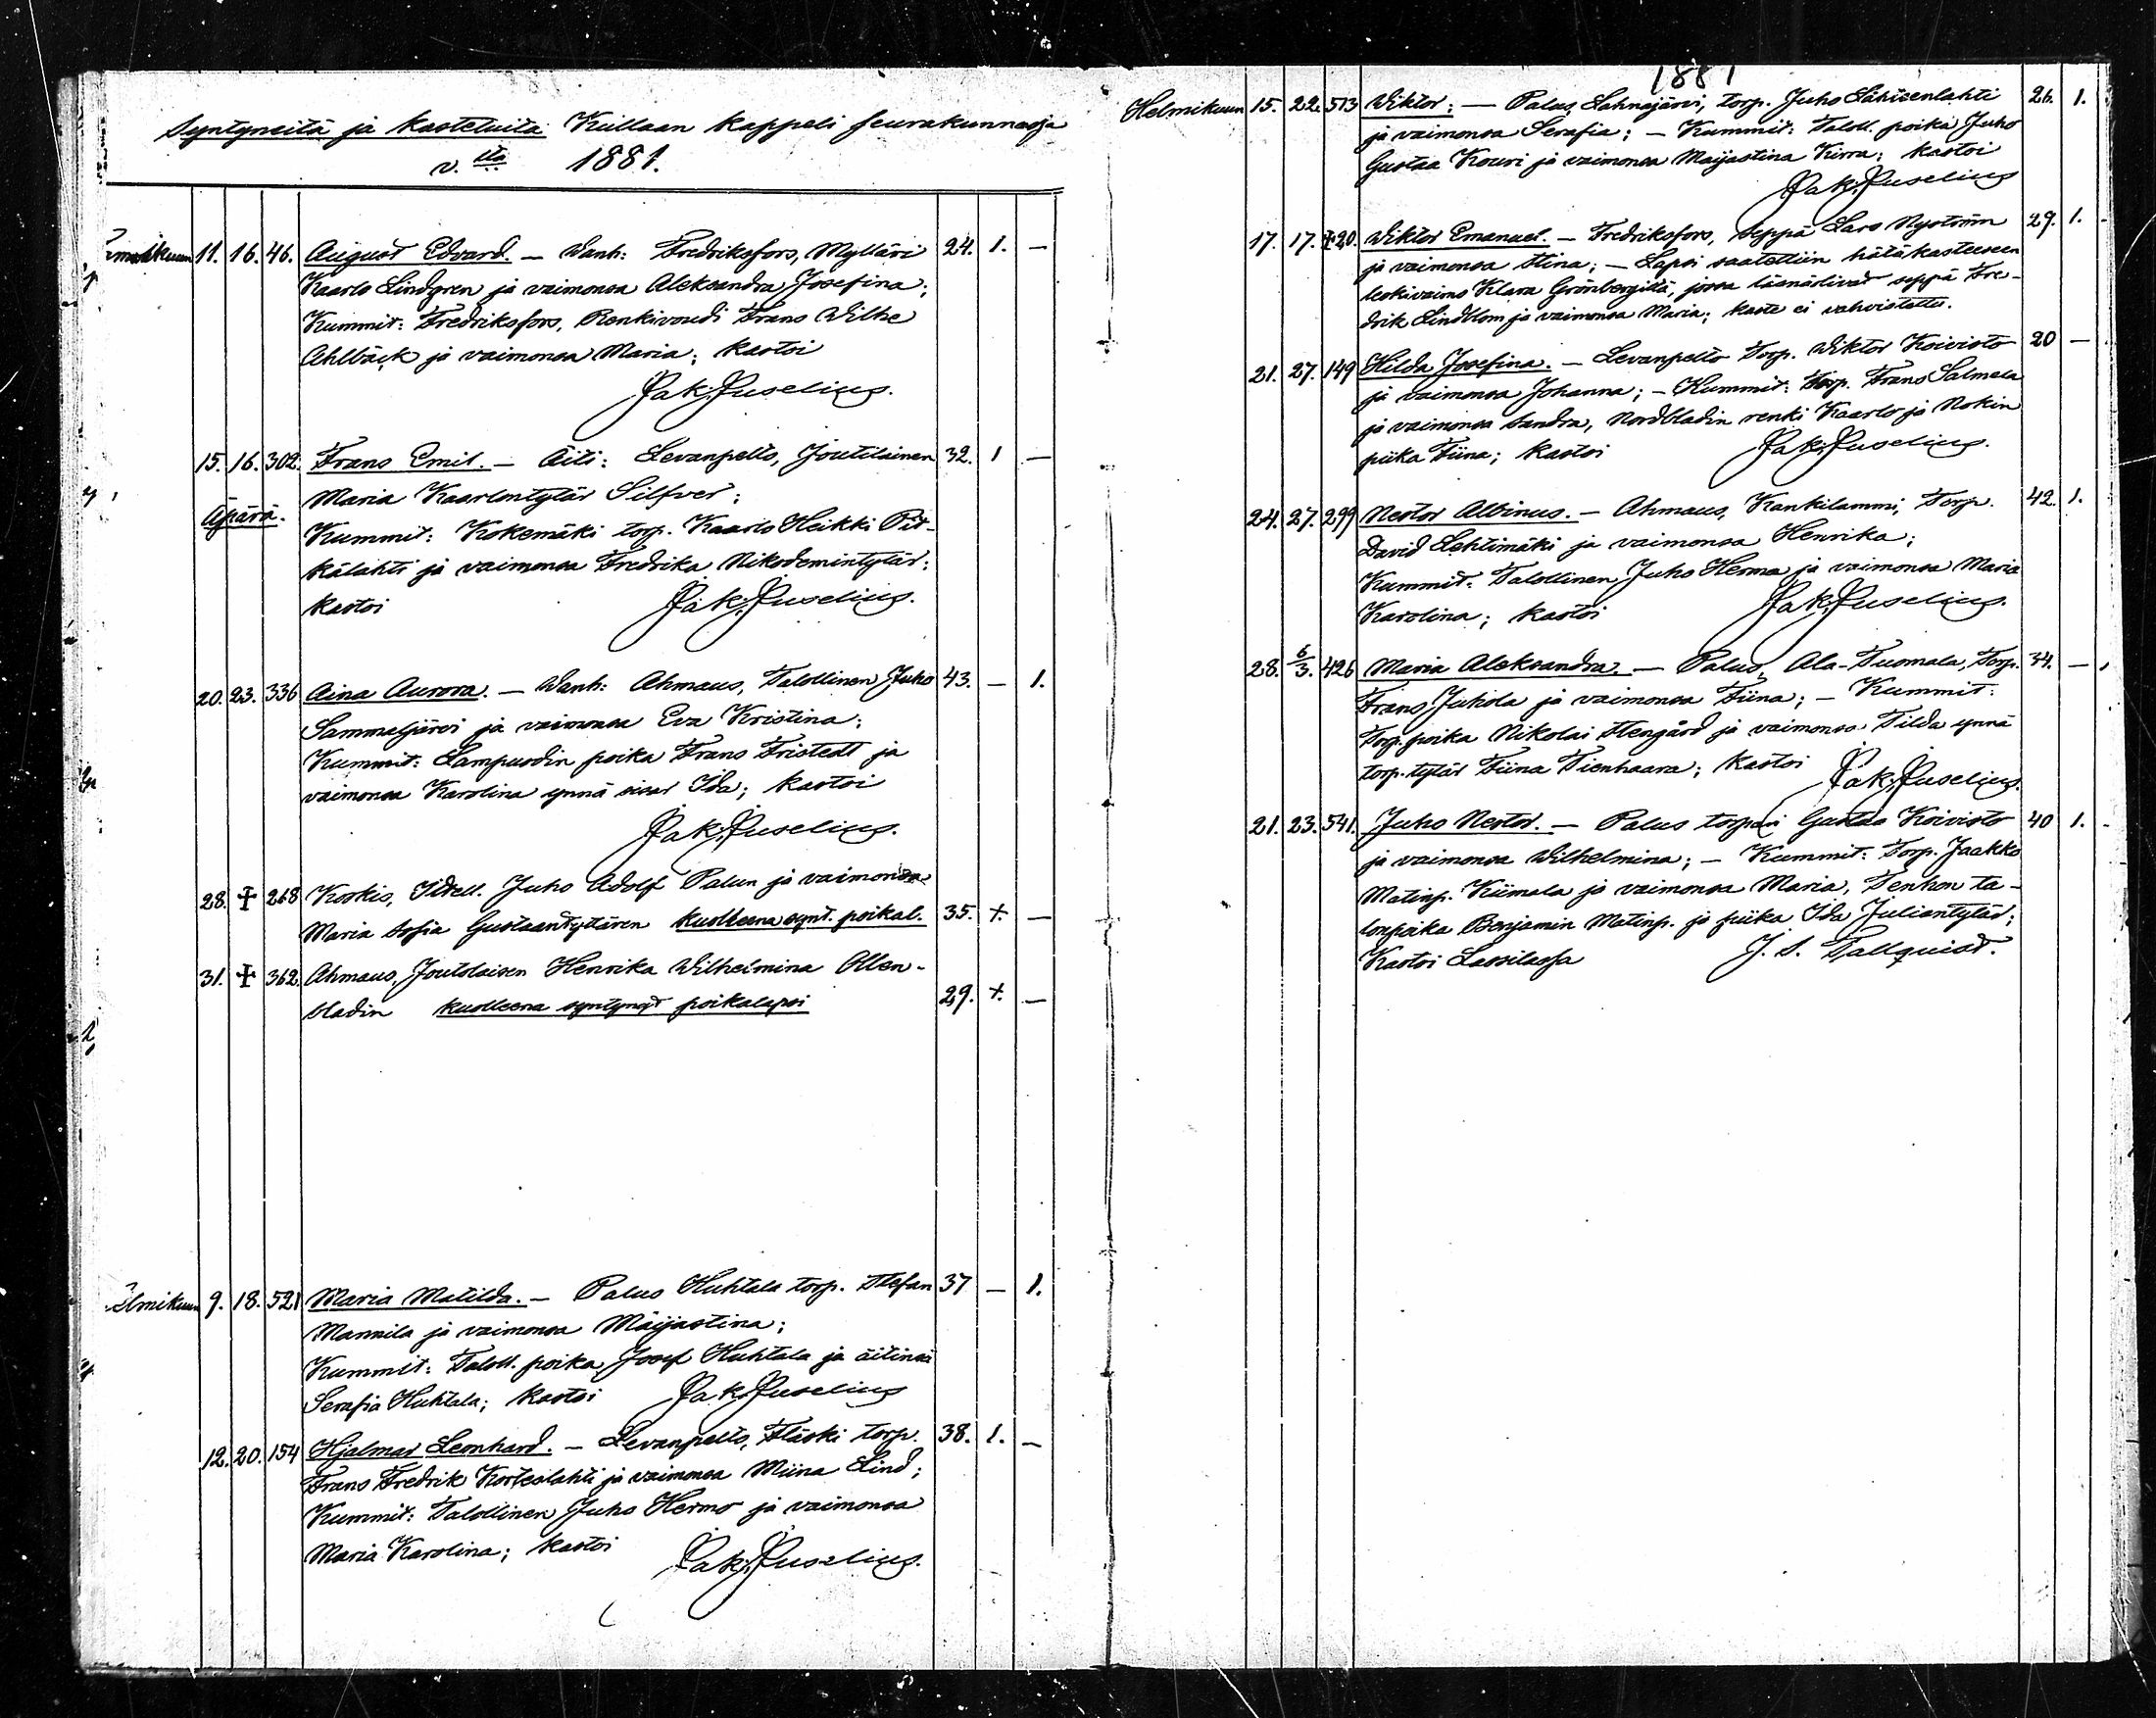 Syntyneitä ja kastetuita Kiillaan kappeli seurakunnassa
v. lta 1881.
11. 16. 46. August Edvard. — Wanh: Fredriksfors, Mylläri 24. 1. —
Kaarlo Lindgren ja vaimonsa Aleksandra Josefina;
Kummit: Fredriksfors, Renkivoudi Frans Wilhe
Ahlbäck ja vaimonsa Maria; kastoi
Jak. Juselius.
15. 16. 302. Frans Emil. — Äiti: Levanpelto, Joutilainen 32. 1 —
Äpärä. Maria Kaarlontytär Silfver;
Kummit: Kokemäki torp. Kaarlo Heikki Pit-
kälahti ja vaimonsa Fredrika Nikodemintytär;
kastoi Jak. Juselius.
20. 23. 336 Aina Aurora. — Wanh: Ahmaus, Talollinen Juho 43. — 1.
Sammaljärvi ja vaimonsa Eva Kristina;
Kummit: Lampuodin poika Frans Fristedt ja
vaimonsa Karolina ynnä sisar Ida; kastoi
Jak. Juselius.
28. ✝ 268 Koskis, Itdell. Juho Adolf Palun ja vaimonsa
Maria Sofia Gustaantyttären kuolleena synt. poikal. 35. +. —
31. ✝ 362. Ahmaus, Joutolaisen Henrika Wilhelmina Ollen-
bladin kuolleena syntynyt poikalapsi 29. +. —
9. 18. 521 Maria Matilda. — Palus Huhtala torp. Stefan 37 — 1.
Mannila ja vaimonsa Maijastina;
Kummit: Taloll. poika Josef Huhtala ja äitinsä
Serafia Huhtala; kastoi Jak. Juselius
12. 20. 154 Hjalmar Leonhard. — Levanpelto, Fläski torp. 38. 1. —
Frans Fredrik Korteslahti ja vaimonsa Miina Lind;
Kummit: Talollinen Juho Hermo ja vaimonsa
Maria Karolina; kastoi Jak. Juselius.
1881
Helmikuun 15. 22. 513 Wiktor; — Palus, Lahnajärvi, torp. Juho Lähteenlahti 26. 1.
ja vaimonsa Serafia; — Kummit: Taloll. poika Juho
Gustaa Kouvi ja vaimonsa Maijastina Kirra; kastoi
Jak. Juselius
17. 17. ✝20. Wiktor Emanuel. — Fredriksfors, seppä Lars Nyström 29. 1.
ja vaimonsa Stina; — Lapsi saatettiin hätäkasteeseen
leskivaimo Klara Grönbergiltä, jossa läsnäolivat seppä Fre-
drik Lindblom ja vaimonsa Maria; kaste ei vahvistettu.
21. 27. 149 Hilda Josefina. — Levanpelto Torp. Wiktor Koivisto 20 —
ja vaimonsa Johanna; — Kummit: Torp. Frans Salmela
ja vaimonsa Sandra, Nordbladin renki Kaarlo ja Nokin
piika Fiina; kastoi Jak. Juselius.
24. 27. 299 Nestor Albinus. — Ahmaus, Kankilammi, Torp. 42. 1.
David Lehtimäki ja vaimonsa Henrika;
Kummit: Talollinen Juho Herma ja vaimonsa Maria
Karolina; kastoi Jak. Juselius.
28. 6/3. 426 Maria Aleksandra. — Palus, Ala-Tuomala, Torp. 34. —
Frans Juhola ja vaimonsa Fiina; — Kummit:
Torp. poika Nikolai Stengård ja vaimonsa Tilda ynnä
torp. tytär Fiina Tienhaara; kastoi Jak. Juselius.
21. 23. 541. Juho Nestor. — Palus torpari Gustaa Koivisto 40 1.
ja vaimonsa Wilhelmina; — Kummit: Torp. Jaakko
Matinp. Kiimala ja vaimonsa Maria, Tenkon ta-
lonpoika Benjamin Matinp. ja piika Ida Juliantytär;
Kastoi Lassilassa J. S. Tallquist.